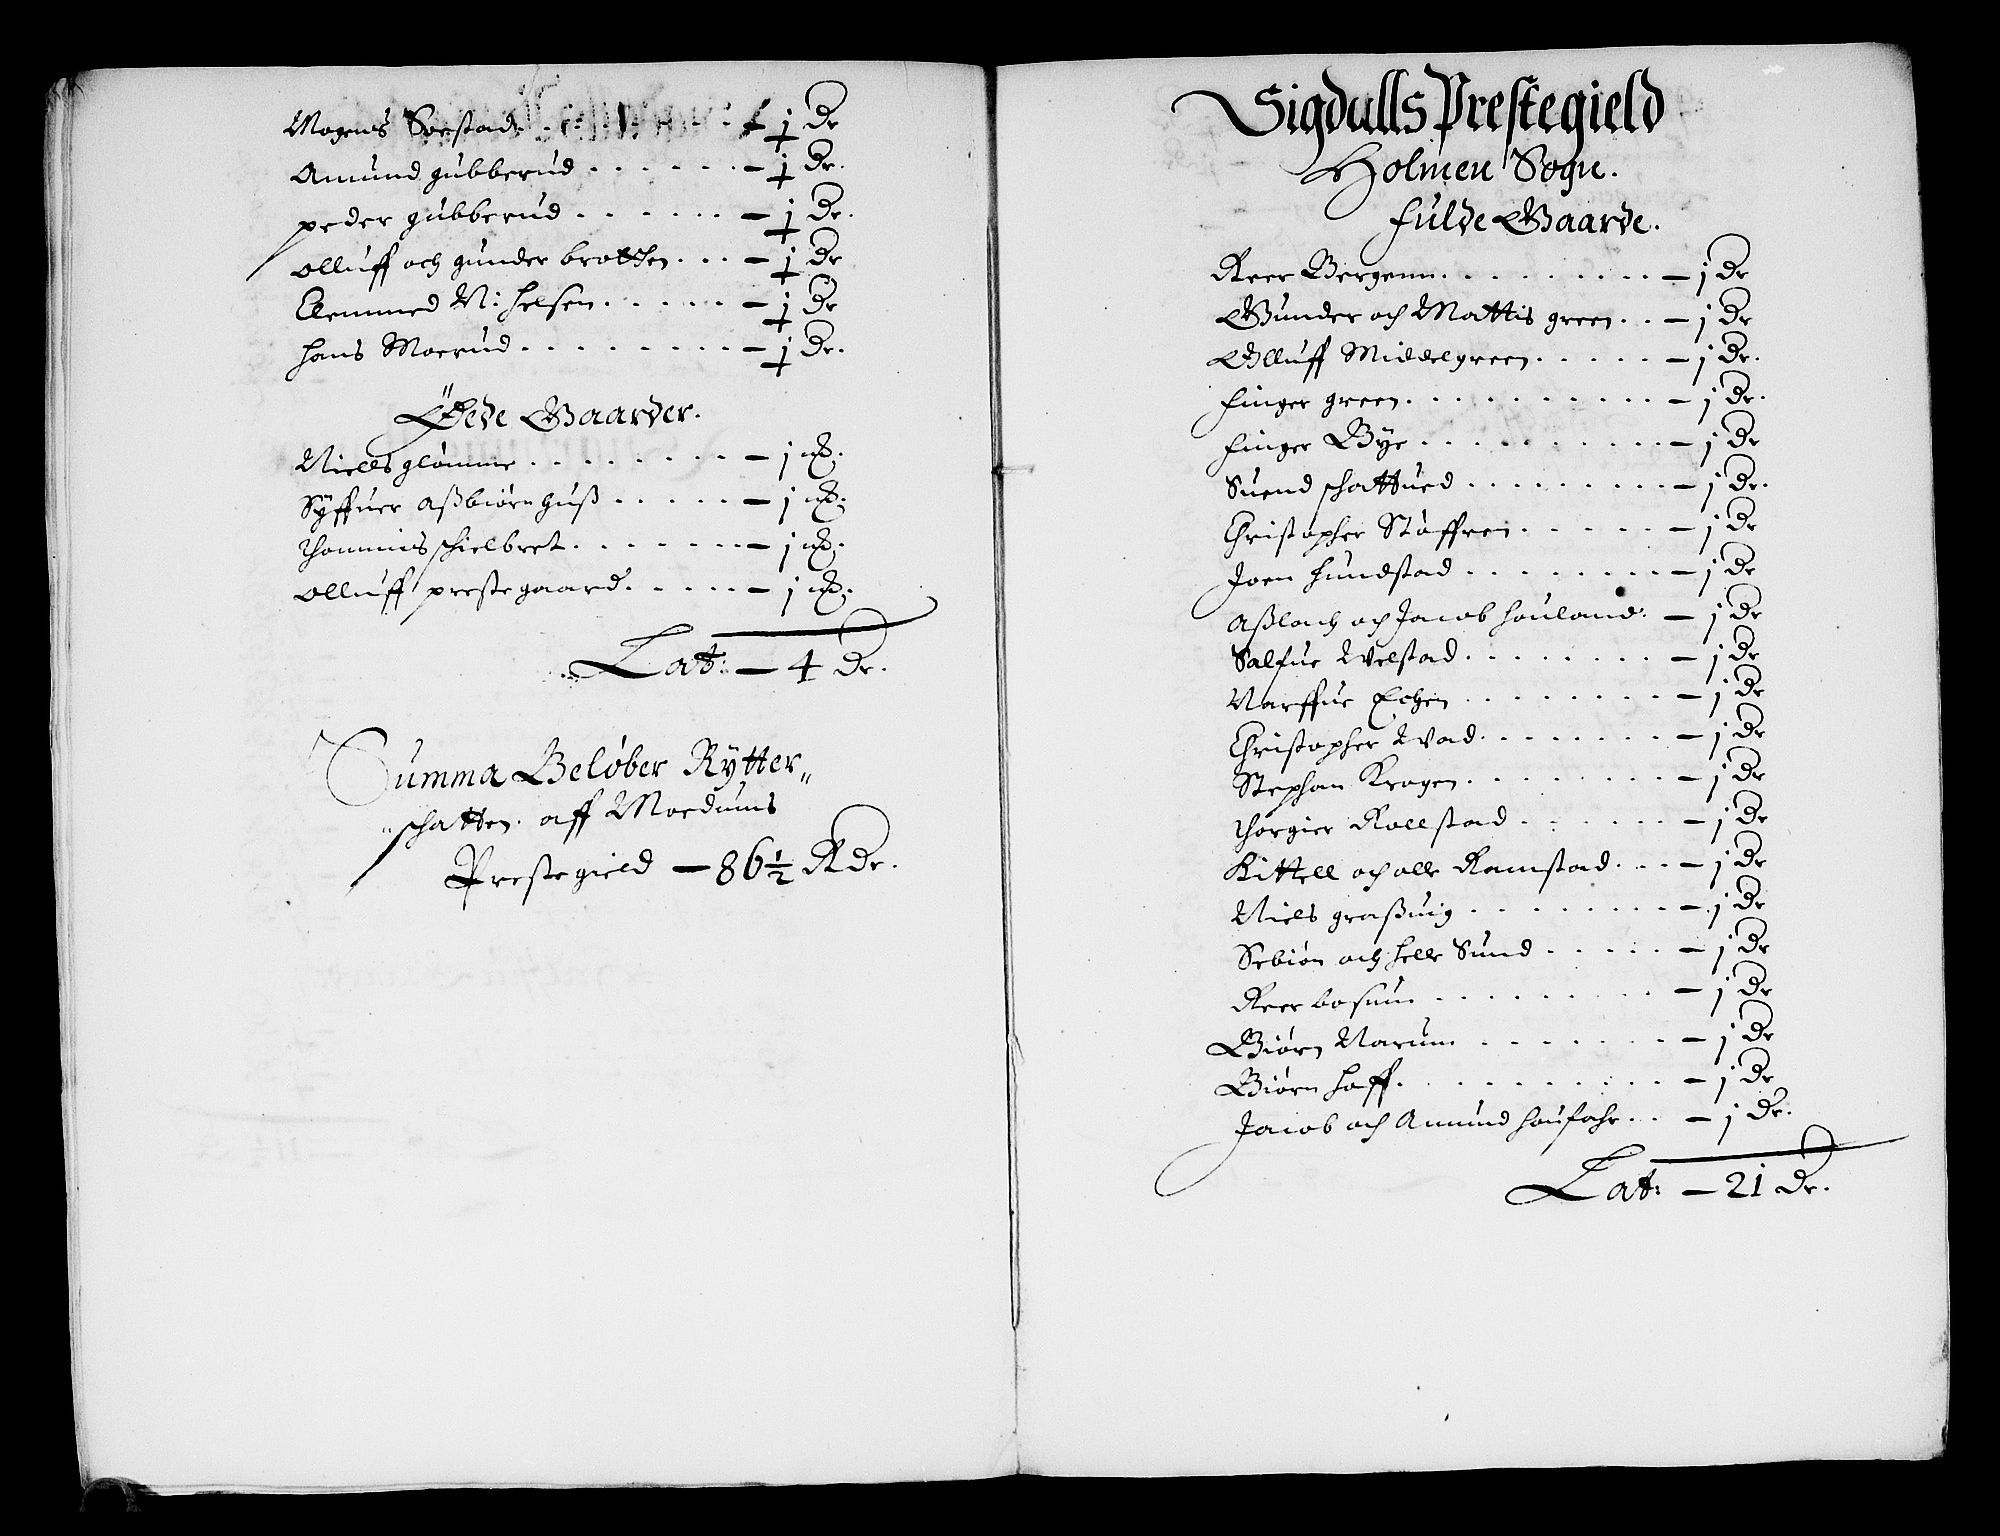 Mogens Sorstad . . . . . . . . ½ Dr
Amund gubberud . . . . . . — ½ Dr.
peder gubberud . . . . . . — ½ Dr.
olluff och gunder brotthen . . . — ½ Dr
Clemmed N: helsen . . . . . — ½ Dr
hans Moerud . . . . . . . . — ½ Dr.
Öede Gaarder.
Niells glømme . . . . . . . . — 1 mꝶ.
Syffuer aßbiørnhuß . . . . . — 1 mꝶ.
Thommis schielbret . . . . . . — 1 mꝶ.
olluff prestegaard . . . . . — 1 mꝶ.
Lat: — 4 Dr.
Summa Beløber Rytter„
„schatten. aff Moedums
Prestegield — 86½ Rdr.
Sigdalls Prestegield
Holmen Sogn.
fulde Gaarde.
Reer Bergenn . . . . . . . . — j Dr
Gunder och Mattis green . . — j Dr
Olluff Middelgreen . . . . . — j Dr.
finger green . . . . . . . . . . — j Dr.
finger Bye . . . . . . . . . . — j Dr
Suend schattued . . . . . . . . — j Dr.
Christopher Støffren . . . . . — j Dr
Joen hundstad . . . . . . . . — j Dr
aßlach och Jacob houland: — j Dr
Salfue Welstad . . . . . . . — j Dr
Narffue Echen . . . . . . . . — j Dr
Christopher Wad . . . . . . . — j Dr
Stephan Kragen . . . . . . . — j Dr
Thorgier Rollstad . . . . . . — j Dr
Kittell och olle Ramstad . . . — j Dr
Niels graßuig . . . . . . . . — j Dr
Sebiøn och helle Sund . . . . . — j Dr
Reer bosum . . . . . . . . . — j Dr
Biørn Narum . . . . . . . — j Dr
Biørn hoff . . . . . . . . . . — j Dr
Jacob och Amund houfahr . . — j Dr.
Lat: — 21 Dr.